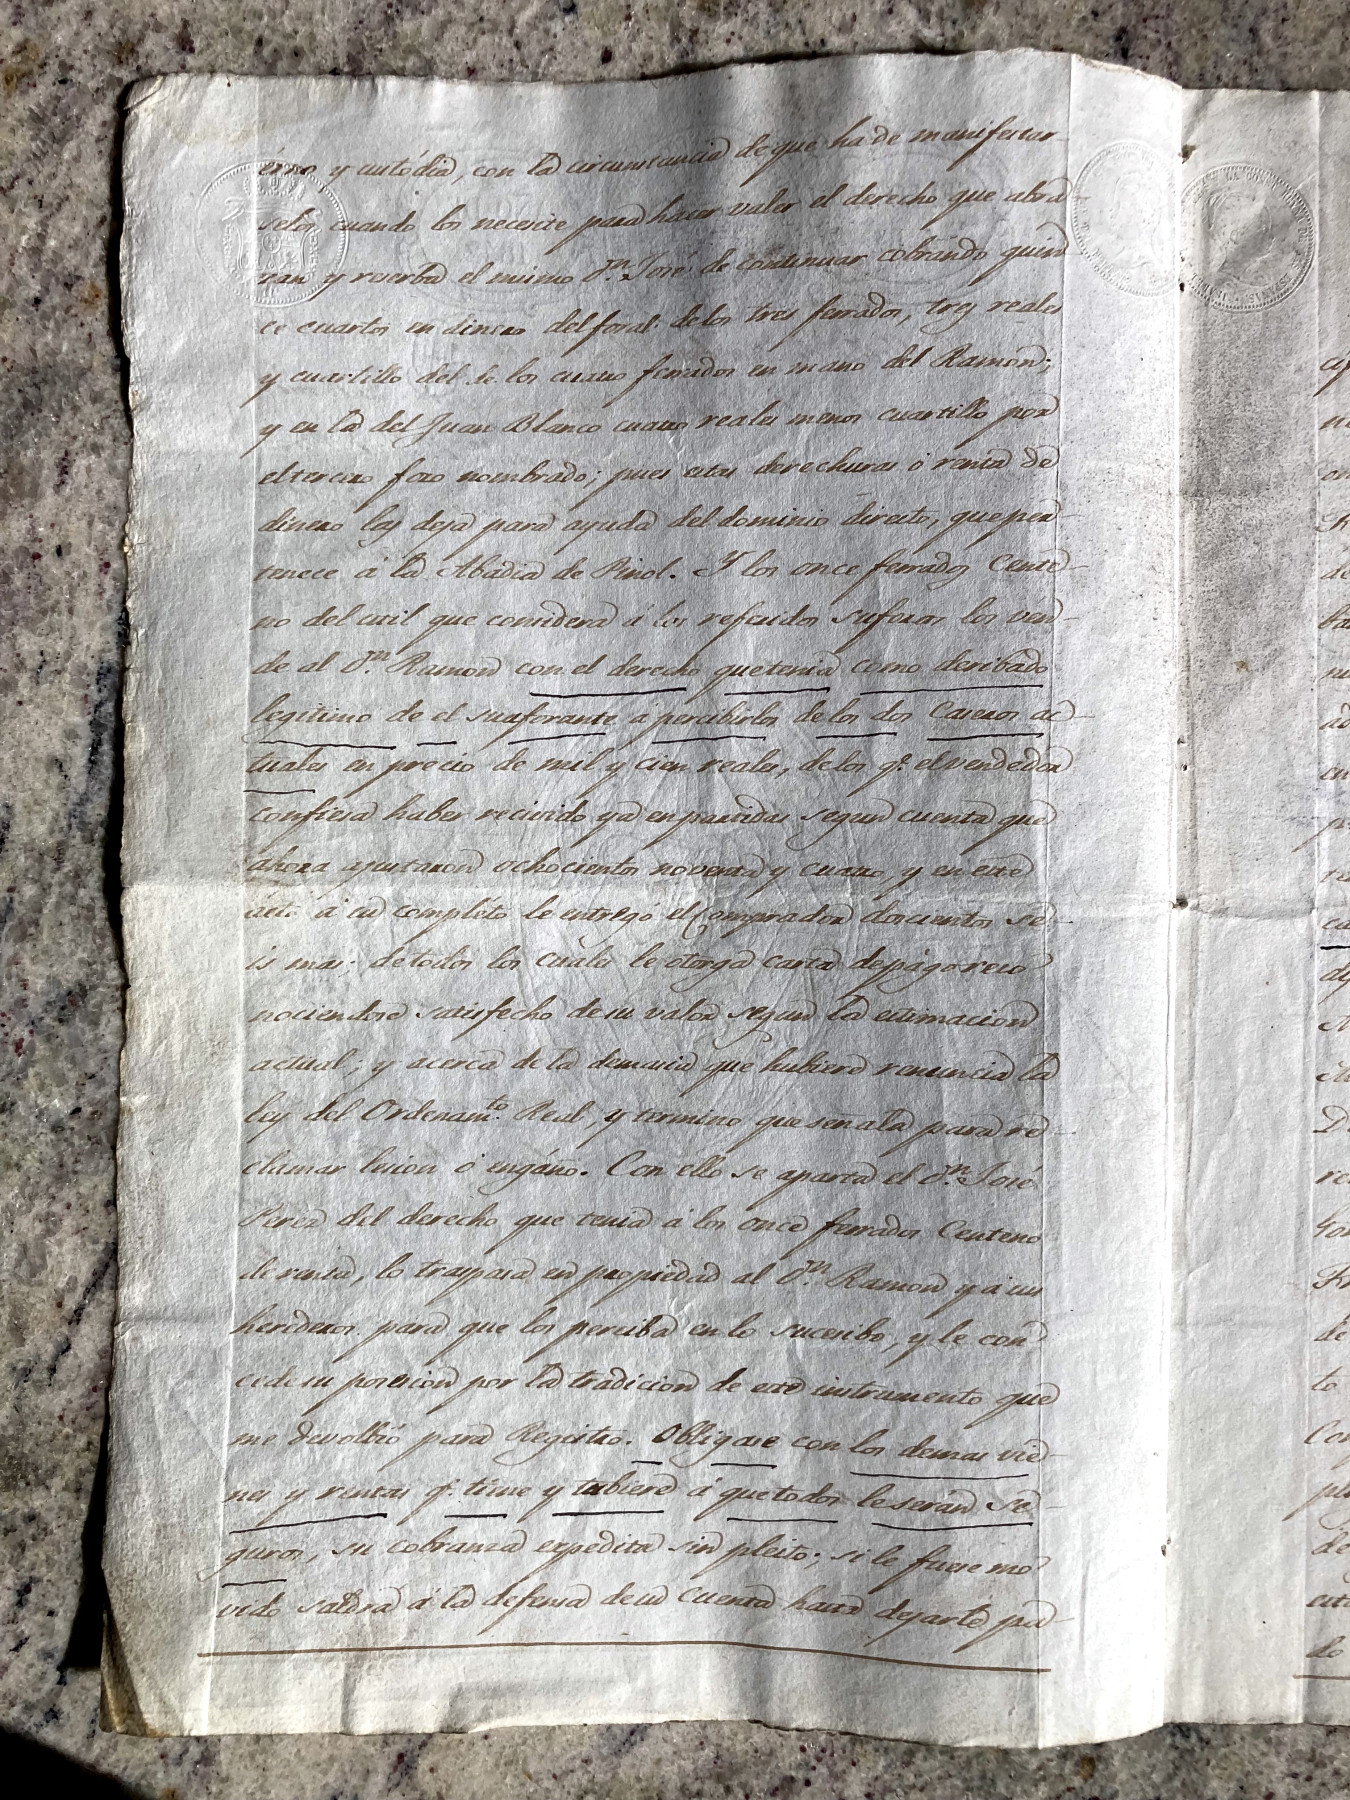 érno y custódia, con la circunstancia de que ha de manifestar-
selos cuando los necesite para hacer valer el derecho que abra-
zan y recerba el mismo Dn. José de continuar cobrando quin
ce cuartos en dinero del foral de los tres ferrados, trey reales
y cuartillo del de los cuatro ferrados en mano del Ramon;
y en la del Juan Blanco cuatro reales menos cuartillo por
el tercero foro nombrado; pues estas derechuras ó renta de
dinero ley deja para ayuda del dominio directo, que per-
tenece á la Abadia de Pinol. Y los once ferrados Cente-
no del util que considera á los referidos suforos los ven-
de al Dn. Ramon con el derecho que tenia como deribado
legitimo de el suaforante á percibirlos de los dos Caseros ac-
tuales en precio de mil y cien reales, de los q.e el vendedor
confiesa haber recivido ya en partidas segun cuenta que
ahora ajustaron ochocientos noventa y cuatro, y en este
acto á su completo le entregó el Comprador doscientos se-
is mas; de todos los cuales le otorga carta de pago reco
nociendose satisfecho de su valor segun la estimacion
actual; y acerca de la demasia que hubiere renuncia la
ley del Ordenam.to Real, y termino que señala para re-
clamar lesion ó engáño. Con ello se aparta el Dn. José
Perez del derecho que tenia á los once ferrados Centeno
de renta, lo traspasa en propiedad al Dn. Ramon y á sus
herederos para que los perciba en lo sucesibo, y le con
cede su posesion por la tradicion de este instrumento que
me devolbió para Registro. Obligase con los demas vie-
nes y rentas q.e tiene y tubiere á que todos le serán se-
guros, su cobranza expedita sin pleito; si le fuere mo
vido saldrá á la defensa de su cuenta hasta dejarle pa-